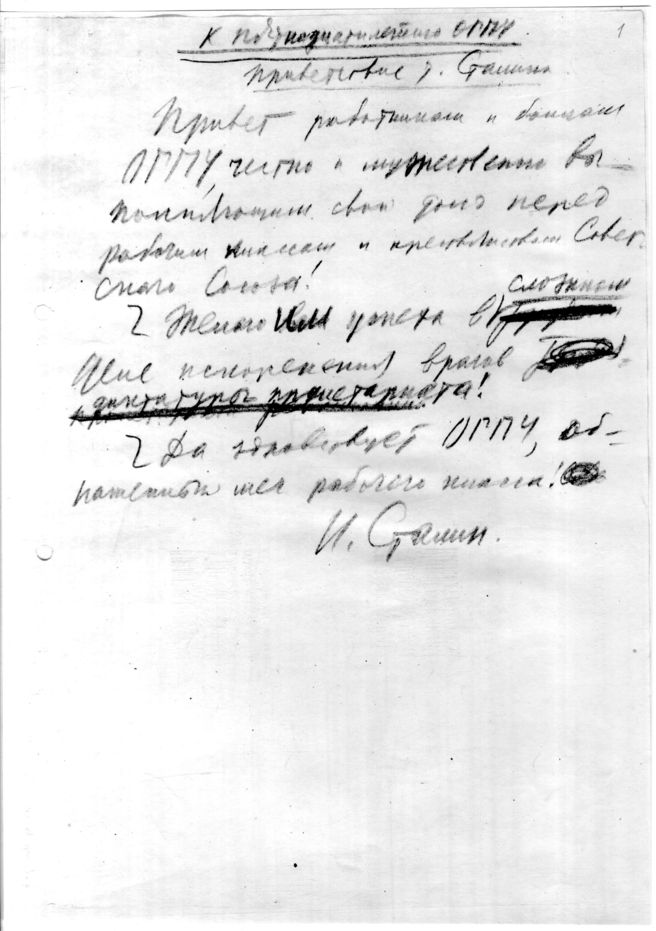 1
К пятнадцатилетию ОГПУ.
Приветствие т. Сталина.
Привет работникам и бойцам
ОГПУ, честно и мужественно вы-
полняющим свой долг перед
рабочим классом и крестьянством Совет-
ского Союза!
Желаю Вам успеха в сложном
деле искоренения врагов
диктатуры пролетариата!
Да здравствует ОГПУ, об-
наженный меч рабочего класса!
И. Сталин.